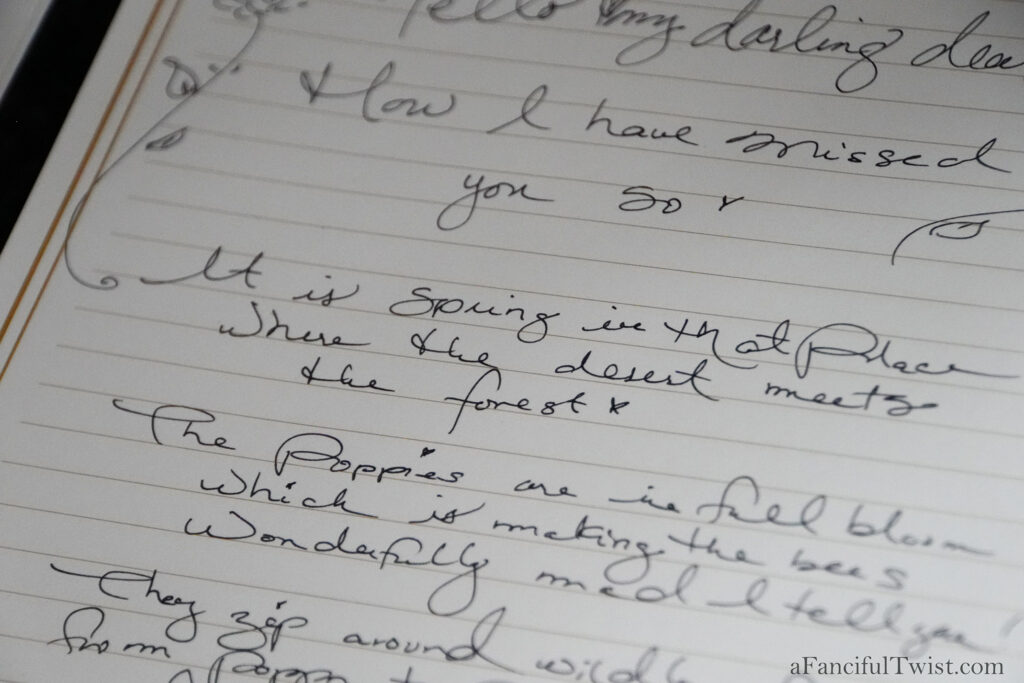 Hello my darling dea
How I have missed
you so
It is Spring in that Place
where the desert meets
the forest *
The Poppies are in full bloom
which is making the bees
Wonderfully mad I tell you!
They zip around wildly
from Poppy to
aFancifulTwist.com